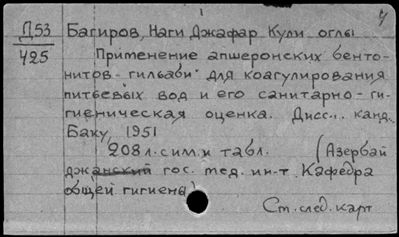 7
Д53 Багиров, Наги Джафар Кули оглы
425
Применение апшеронских бенто-
нитов - гильаби для коагулирования
питьевых вод и его санитарно - ги-
гиеническая оценка. Дисс... канд.
Баку, 1951
208 л. с илл. и табл. (Азербай
джанский гос. мед. ин-т. Кафедра
общей гигиены)
См. след. карт